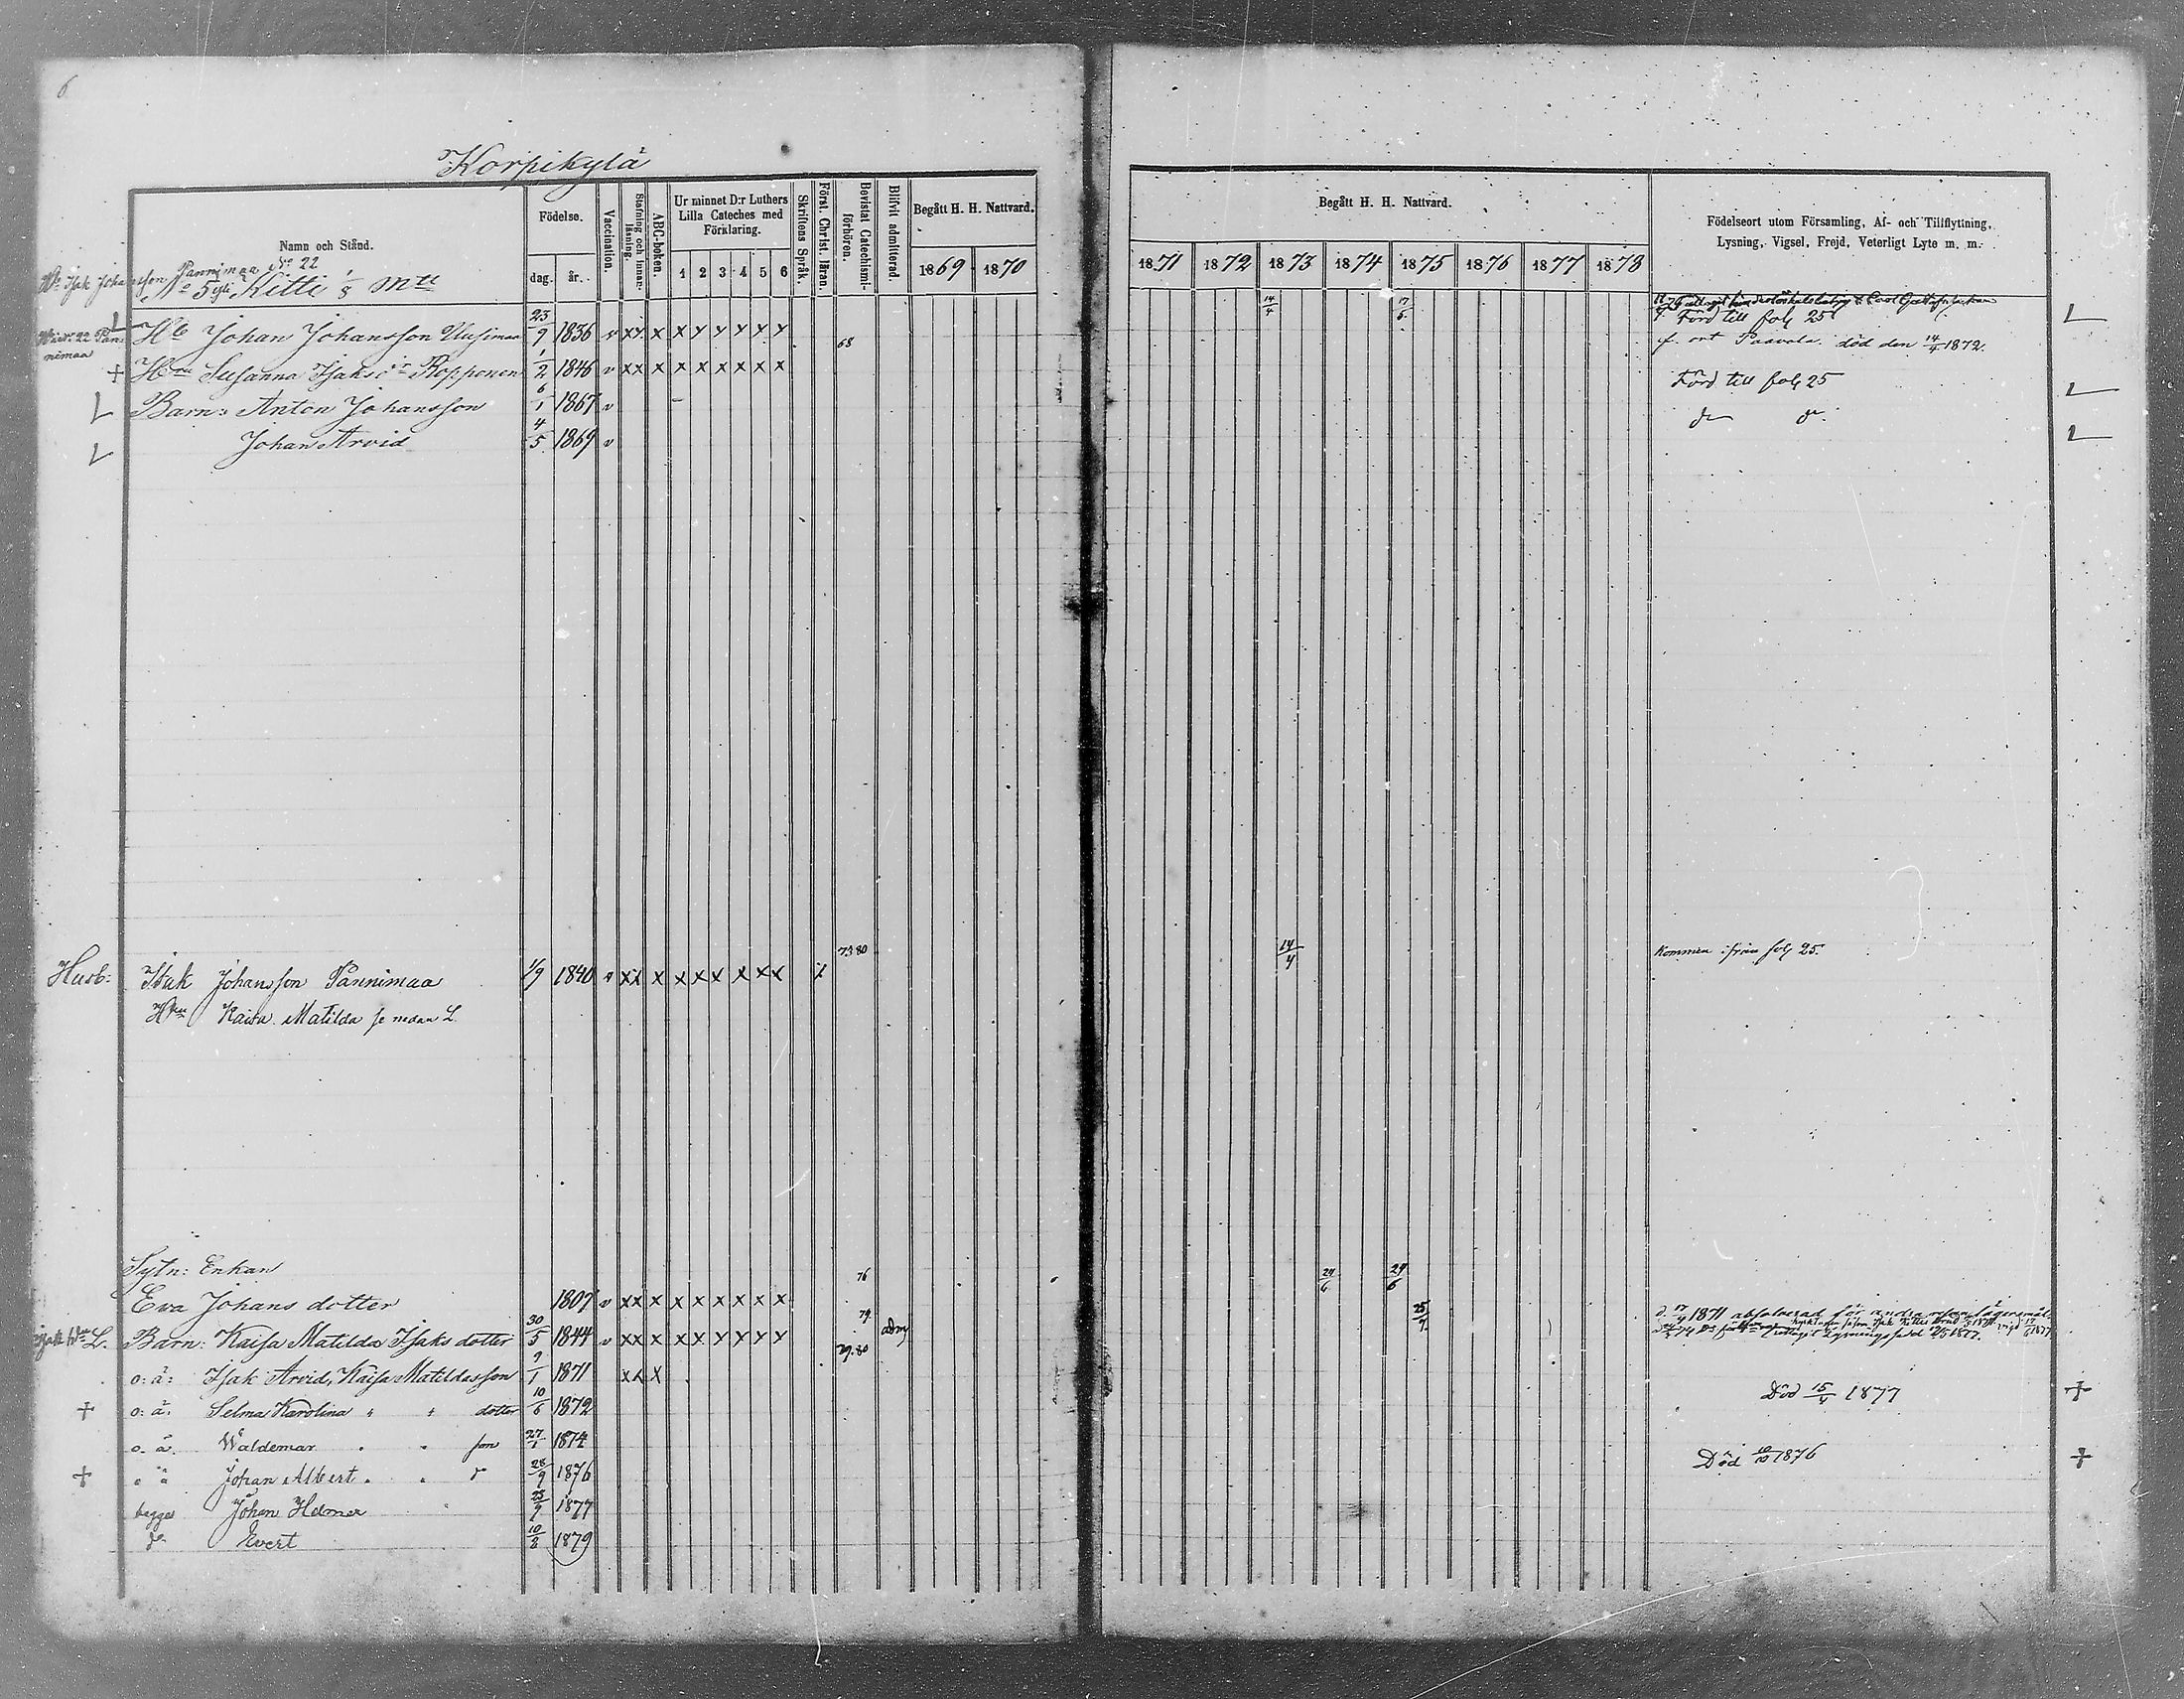 6
Korpikylä
Namn och Stånd.
Födelse.
dag.
år.
Vaccination.
Stafning och Innan-läsning.
ABC-boken.
Ur minnet D:r Luthers Lilla Cateches med Förklaring.
1 2 3 4 5 6
Skriftens Språk.
Först. Christ. läran.
Bevistat Catechismi-förhören.
Blifvit admitterad.
Begått H. H. Nattvard.
1869 1870
Begått H. H. Nattvard.
1871 1872 1873 1874 1875 1876 1877 1878
Födelseort utom Församling, Af- och Tillflyttning,
Lysning, Vigsel, Frejd, Veterligt Lyte m. m.
Hb Isak Johansson Pannimaa No 22
No 5 Kitti 1/8 mtl
Hb Johan Johansson Uusimaa 23/9 1836 v xx x x y y y y y 14/4 17/6 Förd till fol. 25
68
Hu Susanna Isaksdr Ropponen 1/2 1846 v xx x x x x x x x f. ort Paavola. död den 14/4 1872.
Barn: Anton Johansson 6/1 1867 v Förd till fol. 25
Johan Arvid 4/5 1869 v do do
Husb: Isak Johansson Pannimaa 1/9 1840 v xx x x x x x x x 73 80 14/4 Kommen ifrån fol. 25.
Hu Kaisa Matilda se nedan L.
Sytn: Enkan
Eva Johans dotter 1807 v xx x x x x x x x 76 24/6 24/6
L. Barn: Kaisa Matilda Isaks dotter 30/5 1844 v xx x x x y y y y 79 adm 25/4
1871 absolverad för andra resan lägersmål
o: ä: Isak Arvid, Kaisa Matildasson 9/1 1871 xx x 79. 80
o: ä: Selma Karolina " " dotter 10/6 1872 Död 15/4 1877
o. ä. Waldemar " " son 27/1 1874
o ä Johan Albert " " d 28/9 1876 Död 10/10 1876
begges Johan Helmer 25/9 1877
do Evert 10/2 1879